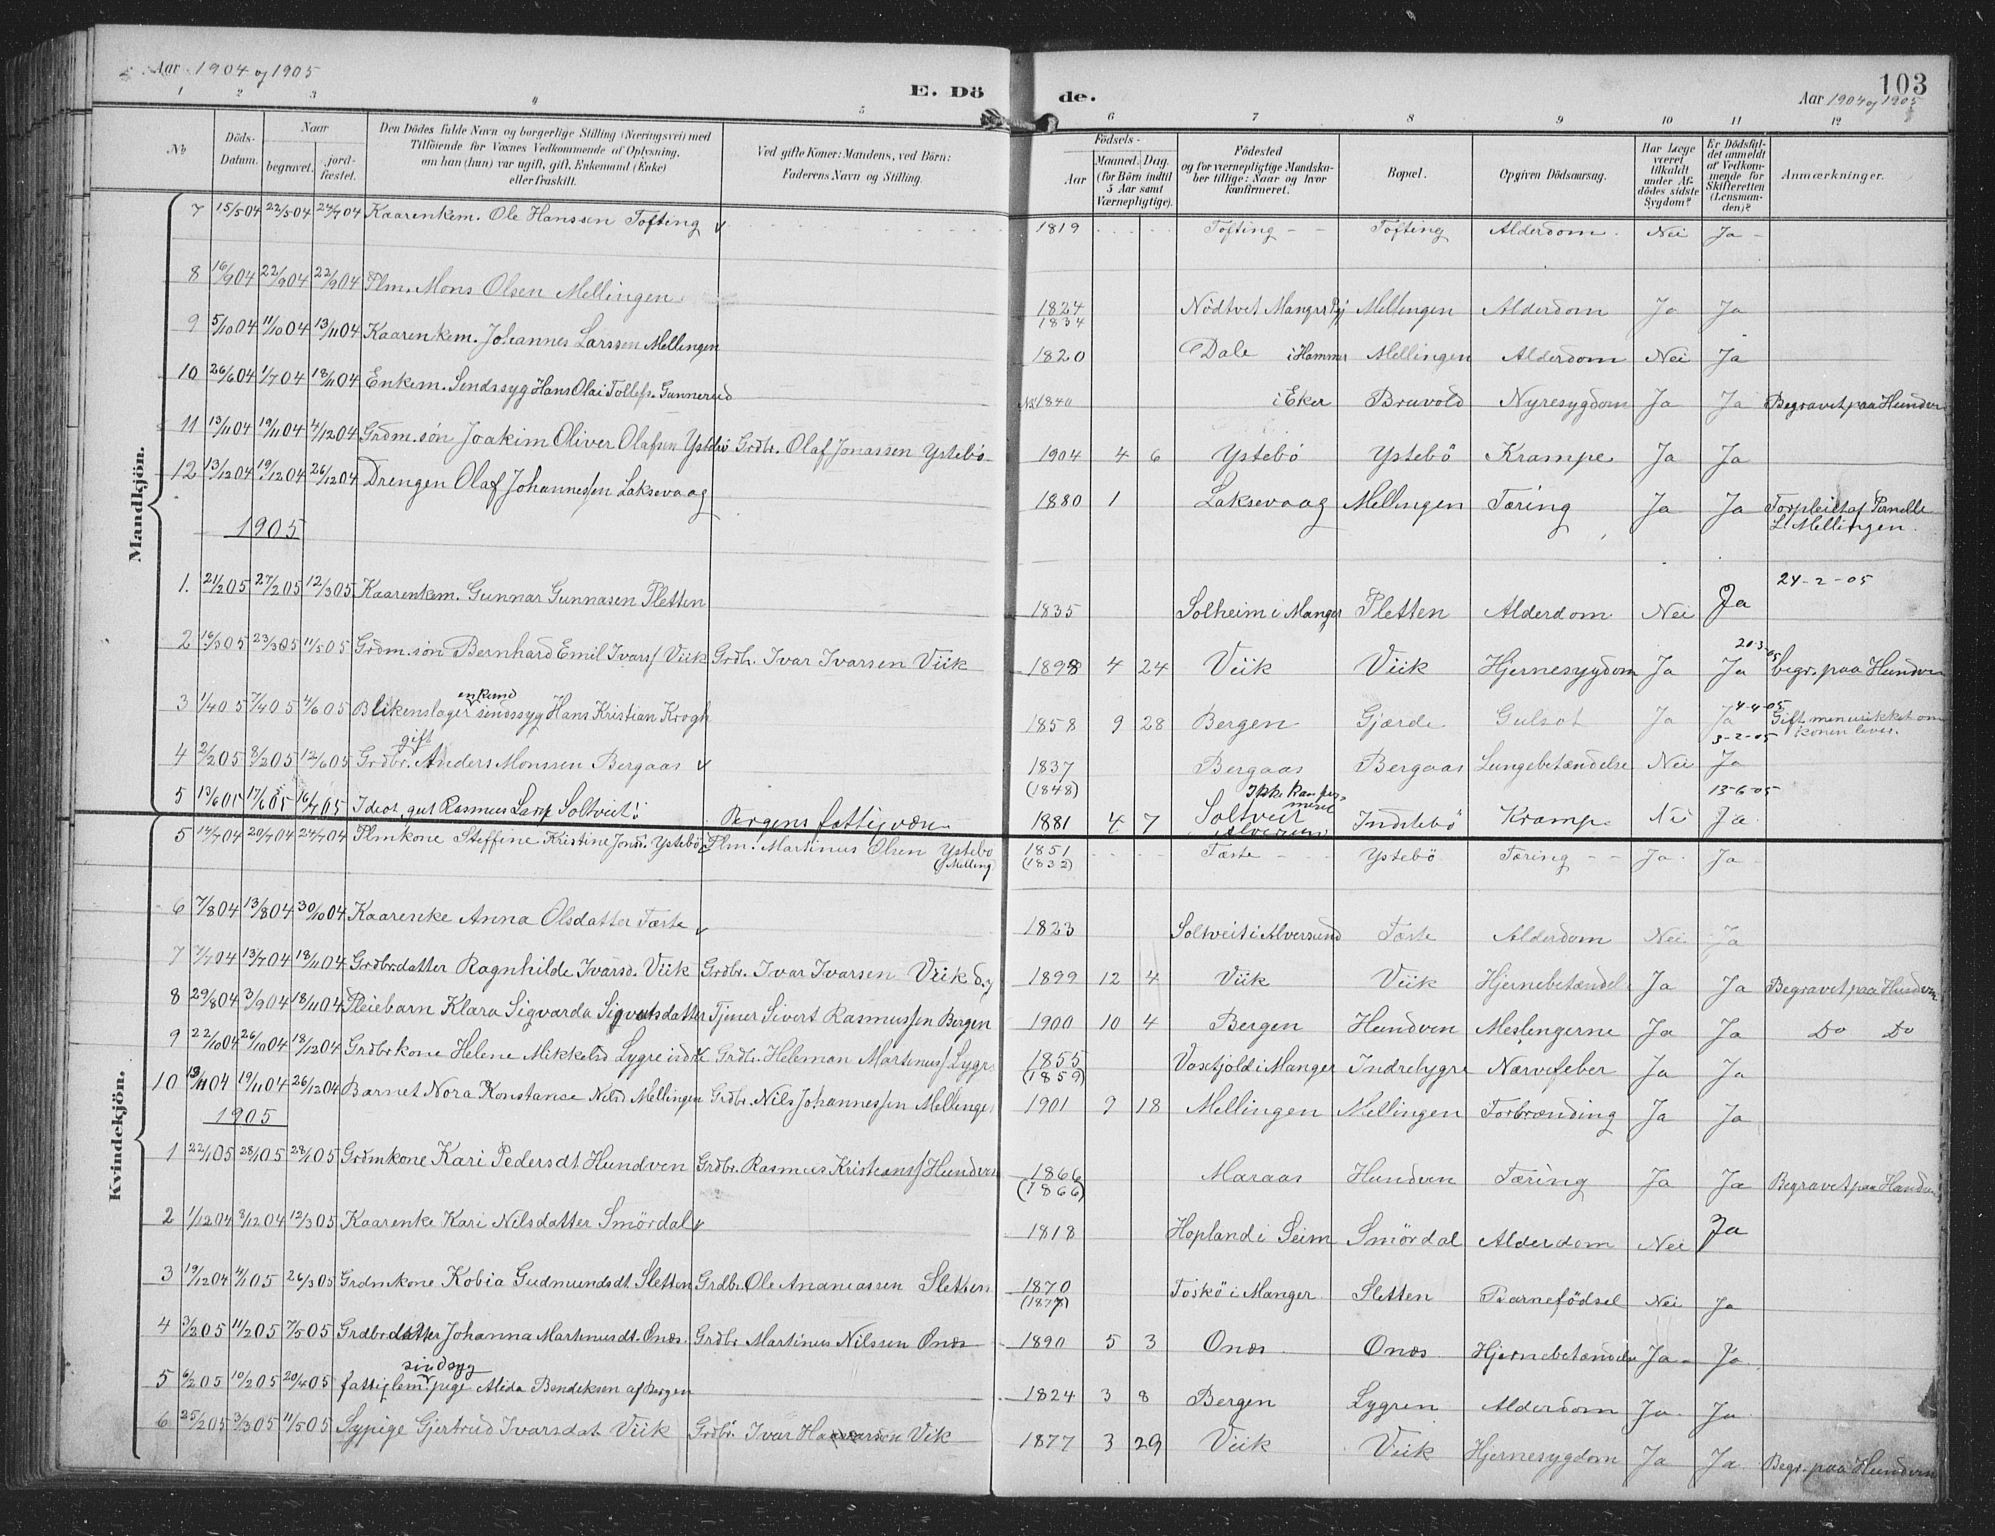 Aar 1904 og 1905
E. Döde.
Aar 1904 og 1905
103
1 2 3 4 5 6 7 8 9 10 11 12
No
Döds-Datum.
Naar
begravet.
jord-fæstet.
Den Dödes fulde Navn og borgerlige Stilling (Næringsvei) med
Tilföiende for Voxnes Vedkommende af Oplysning,
om han (hun) var ugift, gift, Enkemand (Enke)
eller fraskilt.
Ved gifte Koner: Mandens, ved Börn:
Faderens Navn og Stilling.
Födsels-
Aar
Maaned. Dag.
(for Börn indtil
5 Aar samt
Værnepligtige).
Födested
og for værnepligtige Mandska-
ber tillige: Naar og hvor
konfirmeret.
Bopæl.
Opgiven Dödsaarsag.
Har Læge
været
tilkaldt
under Af-
dödes sidste
Sygdom?
Er Dödsfal-
det anmeldt
af Vedkom-
mende for
Skifteretten
(Lensman-
den)?
Anmærkninger.
Mandkjön.
7 15/5 04 22/5 04 24/7 04 Kaarenkem. Ole Hanssen Tofting 1819 Tofting Tofting Alderdom Nei Ja
8 16/9 04 22/9 04 22/9 04 Plm. Mons Olsen Mellingen 1824 1834 Nödtvet Manger Mellingen Alderdom Ja Ja
9 5/10 04 11/10 04 13/11 04 Kaarenkem. Johannes Larssen Mellingen 1820 Dale i Hammer Mellingen Alderdom Nei Ja
10 26/6 04 1/7 04 18/11 04 Enkem. Sindssyg Hans Olai Tollefs. Gunnerud 1840 i Eker Bruvold Nyresygdom Ja Ja Begravet paa Hundven
11 13/11 04 19/11 04 4/12 04 Grdm. sön Joakim Oliver Olafsen Ystebö Grdbr. Olaf Jonassen Ystebö 1904 4 6 Ystebö Ystebö Krampe Ja Ja
12 13/12 04 19/12 04 26/12 04 Drengen Olaf Johannessen Laksevaag 1880 1 Laksevaag Mellingen Tæring Ja Ja Forpleiet af Pernelle
L. Mellingen.
1905
1. 21/2 05 27/2 05 12/3 05 Kaarenkem. Gunnar Gunnasen Pletten 1835 Solheim i Manger Pletten Alderdom Nei Ja 24-2-05
2 16/3 05 23/3 05 11/5 05 Grdm. sön Bernhard Emil Ivars. Viik Grdb. Ivar Ivarsen Viik 1898 4 24 Viik Viik Hjernesygdom Ja 20-3-05 Ja begr. paa Hundven
3 1/4 05 7/4 05 4/6 05 Blikenslager sindssyg Hans Kristian Krogh 1858 9 28 Bergen Gjærde Gulsot Ja Ja 4-4-05 Gift men usikket om
konen lever.
4 2/2 05 8/2 05 12/6 05 Grdbr. gift Anders Monssen Bergaas 1837 (1848) Bergaas Bergaas Lungebetændelse Nei 3-2-05 Ja
5 13/6 05 17/6 05 16/7 05 Idiot gut Rasmus Lars. Soltveit Bergens fattigvæn 1881 4 7 Ikke konfirmeret Soltveit Alversund Indstebö Krampe Nei 13-6-05 Ja
Kvindekjön.
5 14/7 04 20/7 04 24/7 04 Plmkone Steffine Kristine Jonsd. Ystebö Plm. Martinus Olsen Ystebö (Melling) 1851 (1832) Tæste Ystebö Tæring Ja Ja
6 7/8 04 13/8 04 30/10 04 Kaarenke Anna Olsdatter Tæste 1823 Soltveit i Alversund Tæste Alderdom Nei Ja
7 7/7 04 13/7 04 18/11 04 Grdbrdatter Ragnhilde Ivarsd. Viik Grdbr. Ivar Ivarsen Viik 1899 12 4 Viik Viik Hjernebetændel. Ja Ja Begravet paa Hundven
8 29/8 04 3/9 04 18/11 04 Pleiebarn Klara Sigvarda Sigvatsdatter Tjener Sivert Rasmussen Bergen 1900 10 4 Bergen Hundven Meslingerne Ja Ja Do Do
9 22/10 04 26/10 04 18/12 04 Grdbrkone Helene Mikkelsd Lygre indre Grdbr. Heleman Martinus. Lygr. 1855 (1859) Voxtjold i Manger Indrelygre Nærvefeber Ja Ja
10 13/11 04 19/11 04 26/12 04 Barnet Nora Konstanse Nilsd Mellingen Grdbr. Nils Johannessen Mellingen 1901 9 18 Mellingen Mellingen Forbrænding Ja Ja
1905
1 22/1 05 28/1 05 28/1 05 Grdmkone Kari Pedersdt Hundven Grdbr. Rasmus Kristians. Hundven 1866 (1866) Maraas Hundven Tæring Ja Ja Begravet paa Hundven
2 1/12 04 8/12 04 12/3 05 Kaarenke Kari Nilsdatter Smördal 1818 Hopland i Seim Smördal Alderdom Nei Ja
3 19/12 04 4/1 05 26/3 05 Grdmkone Kobia Gudmundsdt. Sletten Grdbr. Ole Ananiassen Sletten 1870 (1877) Toskö i Manger Sletten Barnefödsel Nei Ja
4 3/2 05 11/2 05 7/5 05 Grdbrdatter Johanna Martinusdt. Onæs Grdbr. Martinus Nilssen Onæs 1890 5 3 Onæs Onæs Hjernebetændelse Ja Ja
5 6/2 05 10/2 05 20/4 05 fattiglem sindsyg pige Alida Bendiksen af Bergen 1824 3 8 Bergen Lygren Alderdom Ja Ja
6 25/2 05 3/3 05 11/5 05 Sypige Gjertrud Ivarsdat Viik Grdbr. Ivar Viik 1877 3 29 Viik Viik Hjernesygdom Ja Ja Begr. paa Hundven